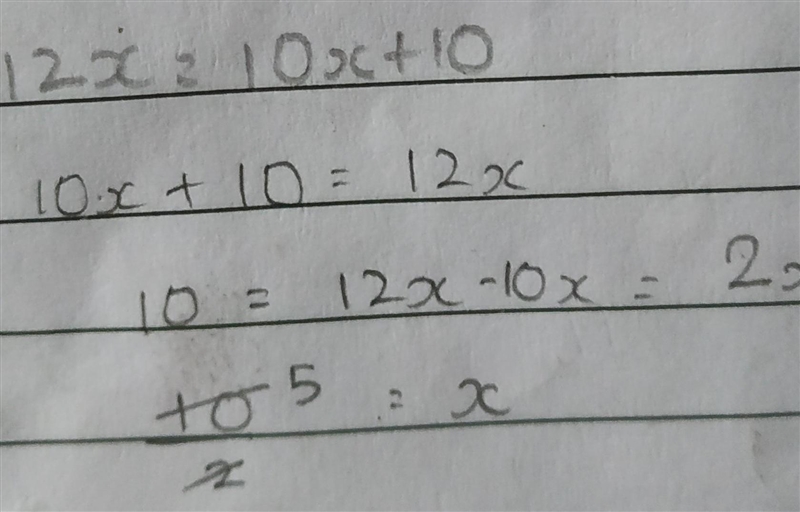 12x = 10x+10
10x + 10 = 12x
10 = 12x-10x = 2x
10 5 = x
2